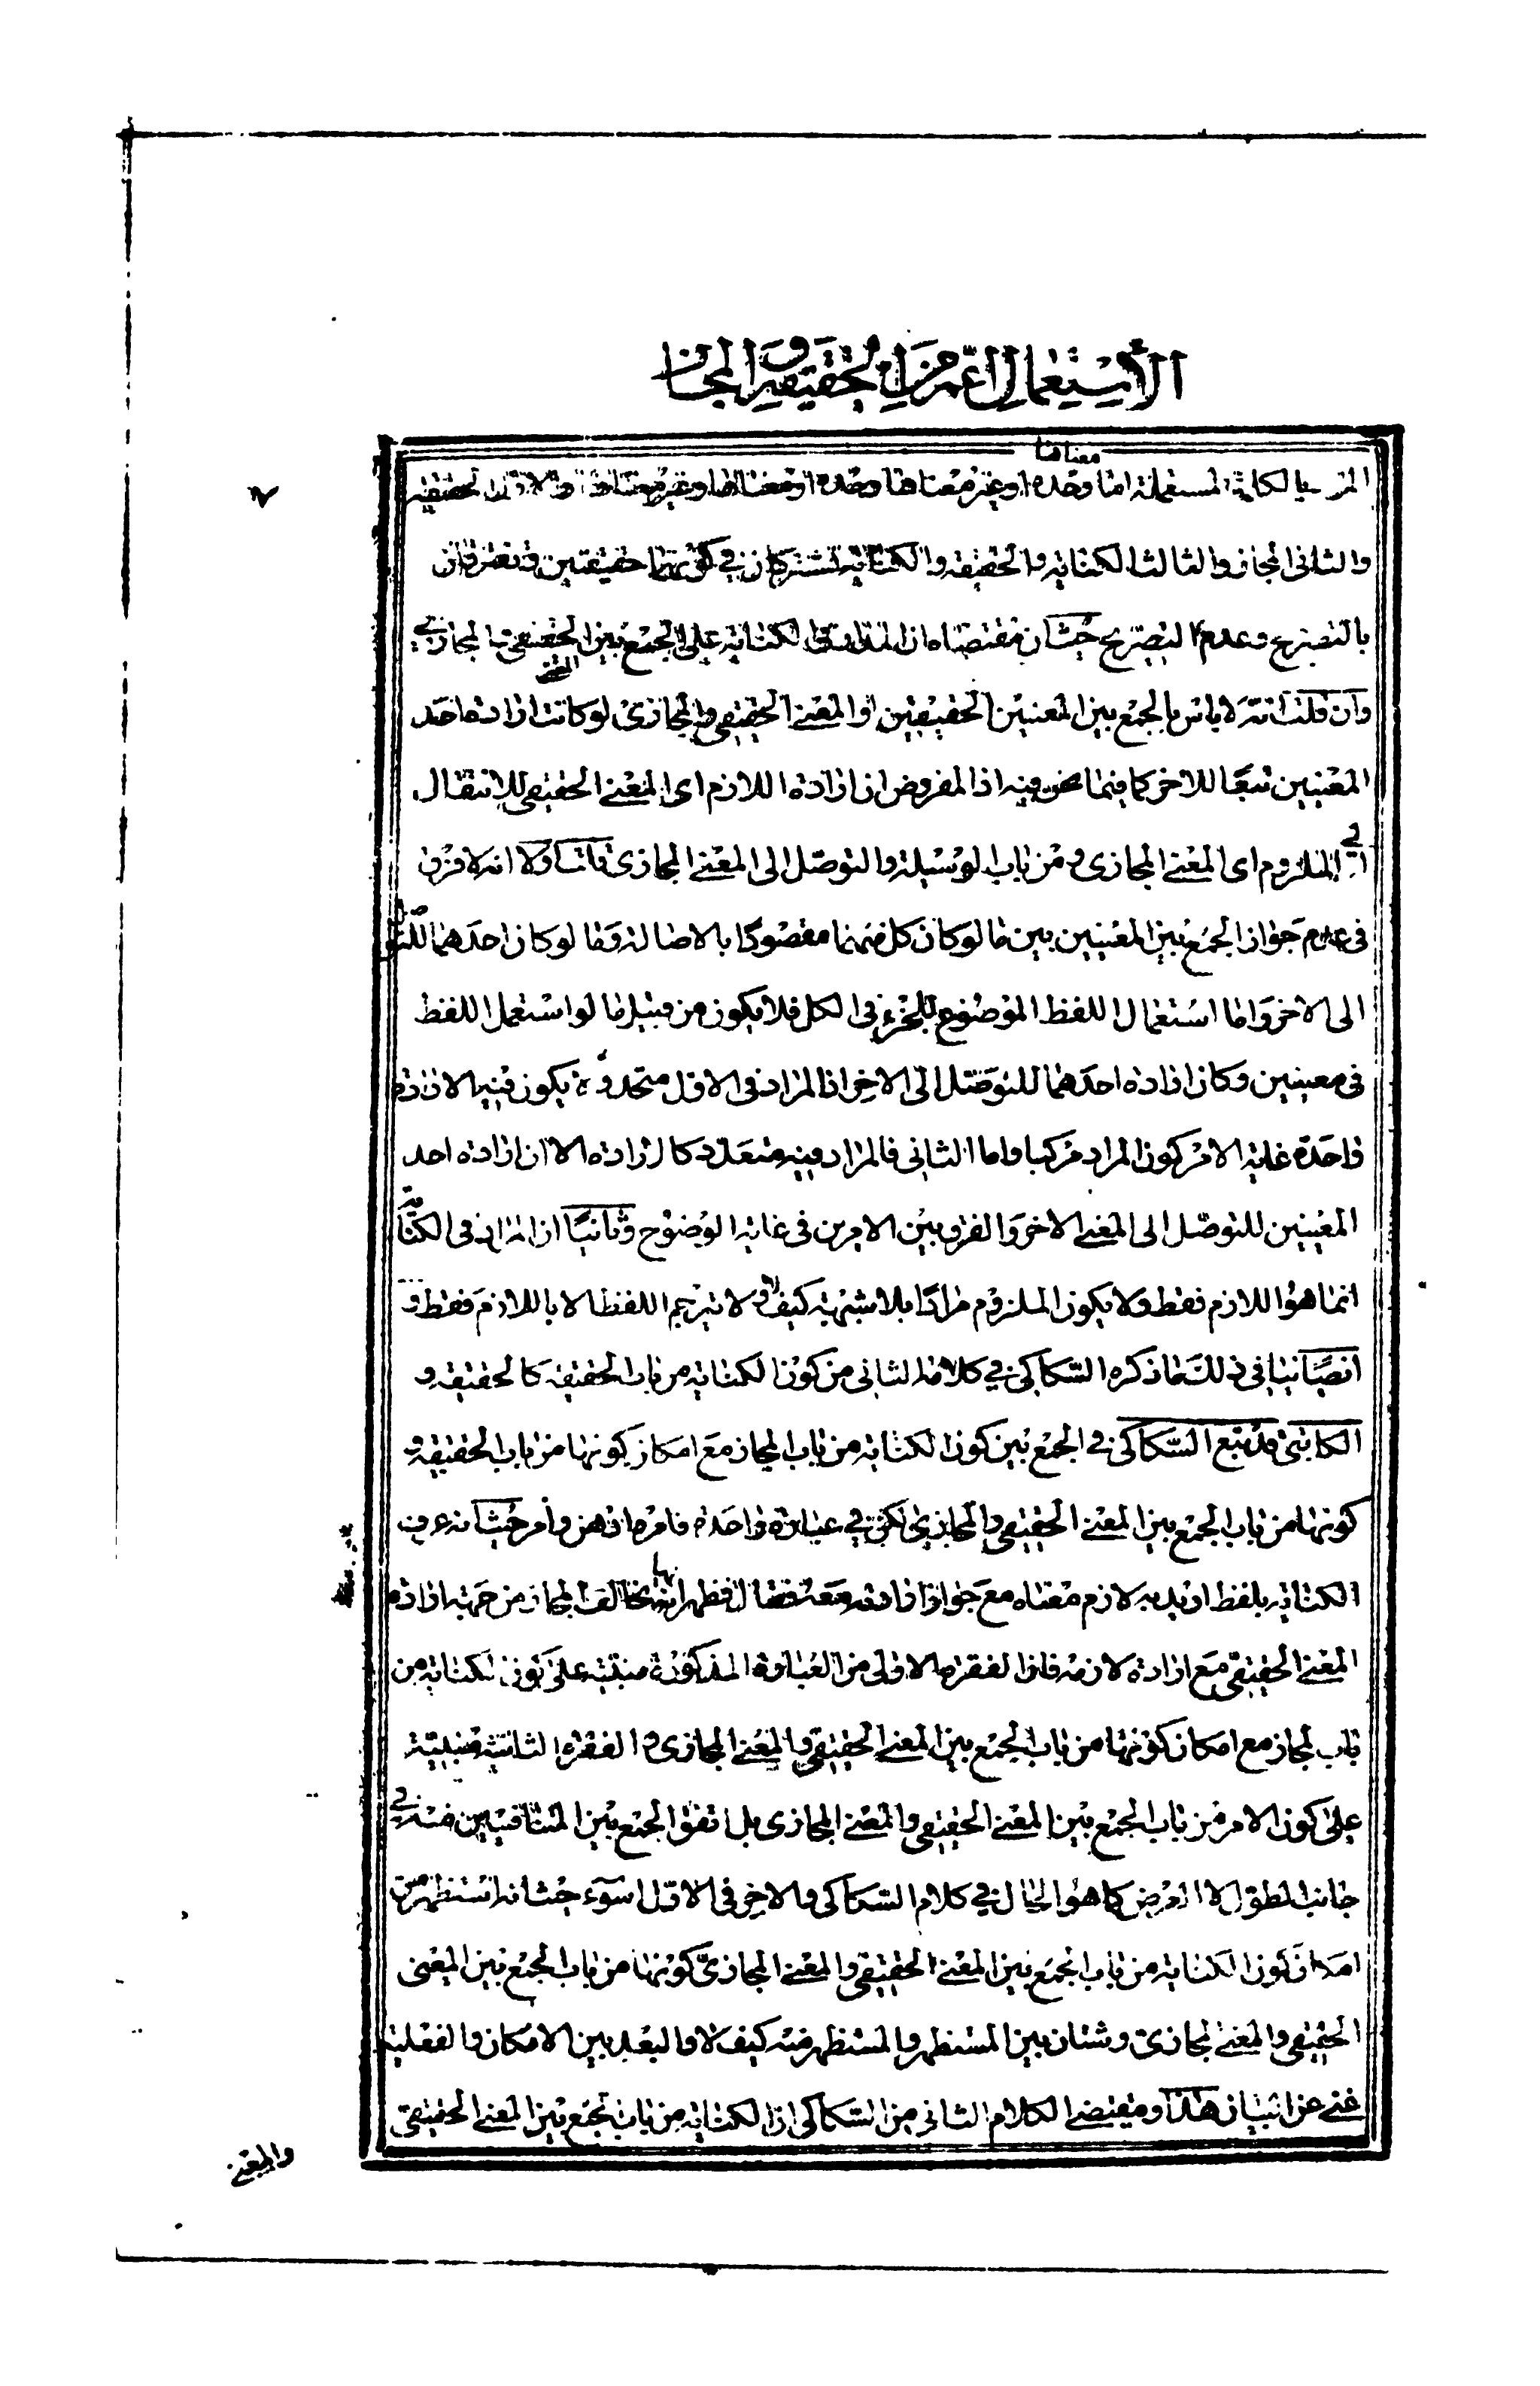 الاستعمال اعم من الحقيقة والمجاز
٧
معناها
المراد بالكلمة المستعملة اما وحده او غير معناها وحده او معناها وغير معناها والاول الحقيقة
والثاني المجاز والثالث الكناية والحقيقة والكناية تشتركان في كونهما حقيقتين وتفترقان
بالتصريح وعدم التصريح حيث ان مقتضاه ان المدار في الكناية على الجمع بين الحقيقي والمجازي
وان قلت انه لا باس بالجمع بين المعنيين الحقيقيين او المعنى الحقيقي والمجازي لو كانت ارادة احد
المعنيين تبعا للاخر كما فيما نحن فيه اذ المفروض ان ارادة اللازم اى المعنى الحقيقي للانتقال
الى الملزوم اى المعنى المجازى من باب الوسيلة والتوصل الى المعنى المجازى قلت اولا انه لا فرق
في عدم جواز الجمع بين المعنيين بين ما لو كان كل منهما مقصودا بالاصالة وما لو كان احدهما للتوصل
الى الاخر واما استعمال اللفظ الموضوع للجزء في الكل فلا يكون من قبيل ما لو استعمل اللفظ
في معنيين وكان ارادة احدهما للتوصل الى الاخر اذ المراد في الاول متحد و يكون فيه الارادة
واحدة غاية الامر كون المراد مركبا واما الثاني فالمراد فيه متعدد كالارادة الا ان ارادة احد
المعنيين للتوصل الى المعنى الاخر والفرق بين الامرين في غاية الوضوح وثانيا ان المراد في الكناية
انما هو اللازم فقط ولا يكون الملزوم مرادا بلا شبهة كيف لا ولا يترجم اللفظ الا باللازم فقط و
ايضا ينافى ذلك ما ذكره السكاكى في كلامه الثانى من كون الكناية من باب الحقيقة كالحقيقة و
الكاتبى قد تبع السكاكى في الجمع بين كون الكناية من باب المجاز مع امكان كونها من باب الحقيقة و
كونها من باب الجمع بين المعنى الحقيقي والمجازي لكن في عبارة واحدة فامره اوهن وامر حيث انه عرف
الكناية بلفظ اريد به لازم معناه مع جواز ارادته معه فقال فظهر انها تخالف المجاز من جهة ارادة
المعنى الحقيقي مع ارادة لازمه فان الفقرة الاولى من العبارة المذكورة مبتنية على كون الكناية من
باب المجاز مع امكان كونها من باب الجمع بين المعنى الحقيقي والمعنى المجازى و الفقرة الثانية مبنية
على كون الامر من باب الجمع بين المعنى الحقيقي والمعنى المجازى بل اتفق الجمع بين المتنافيين منه في
جانب الطول لا العرض كما هو الحال في كلام السكاكى والاخر في الاول اسوء حيث انه استظهر من
امكان كون الكناية من باب الجمع بين المعنى الحقيقي والمعنى المجازى كونها من باب الجمع بين المعنى
الحقيقي والمعنى المجازى وشتان بين المستظهر والمستظهر منه كيف لا والبعد بين الامكان والفعلية
غنى عن البيان هذا ومقتضى الكلام الثانى من السكاكى ان الكناية من باب الجمع بين المعنى الحقيقى
والمعنى